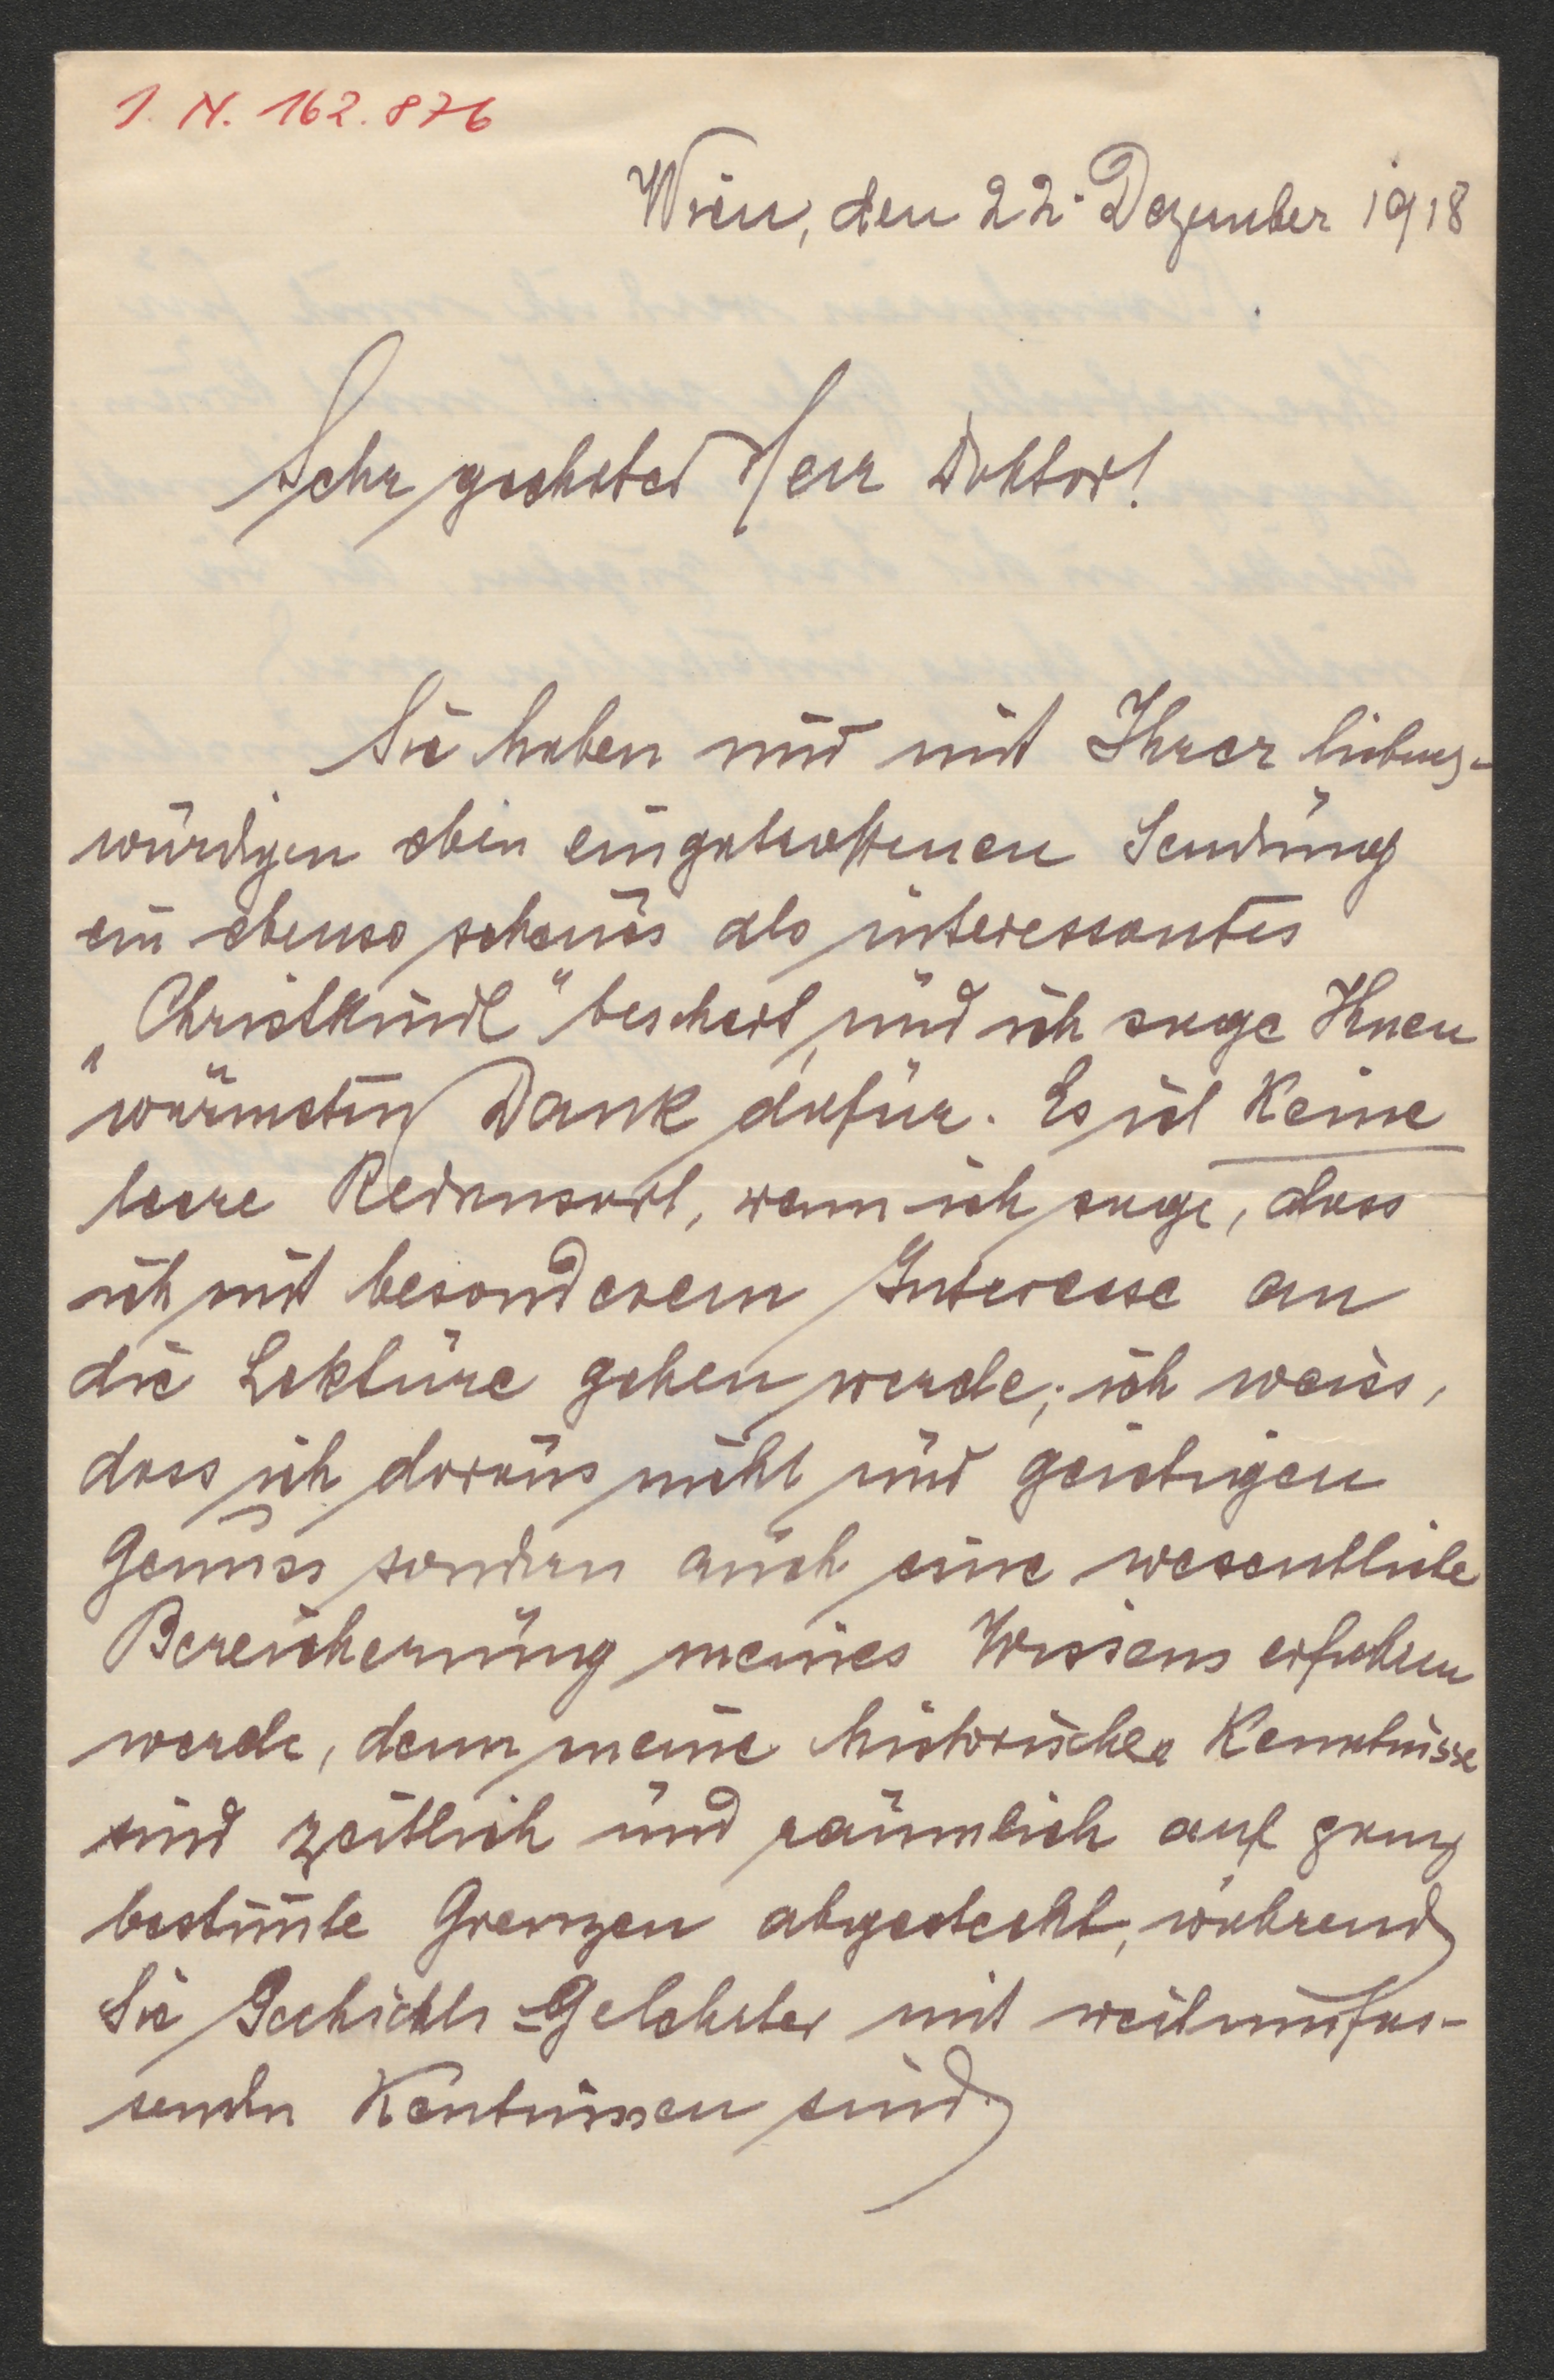 I. N. 162.876
Wien, den 22. Dezember 1918
Sehr geehrter Herr Doktor!
Sie haben mir mit Ihrer liebens-
würdigen eben eingetroffenen Sendung
ein ebenso schönes als interessantes
„Christkindl" beschert, und ich sage Ihnen
wärmsten Dank dafür. Es ist keine
leere Redensart, wenn ich sage, dass
ich mit besonderem Interesse an
die Lektüre gehen werde; ich weiss,
dass ich daraus nicht nur geistigen
Genuss sondern auch eine wesentliche
Bereicherung meines Wissens erfahren
werde, denn meine historischen Kenntnisse
sind zeitlich und räumlich auf ganz
bestim̄te Grenzen abgesteckt, während
Sie Geschichts-Gelehrter mit weitumfas-
senden Kentnissen sind.